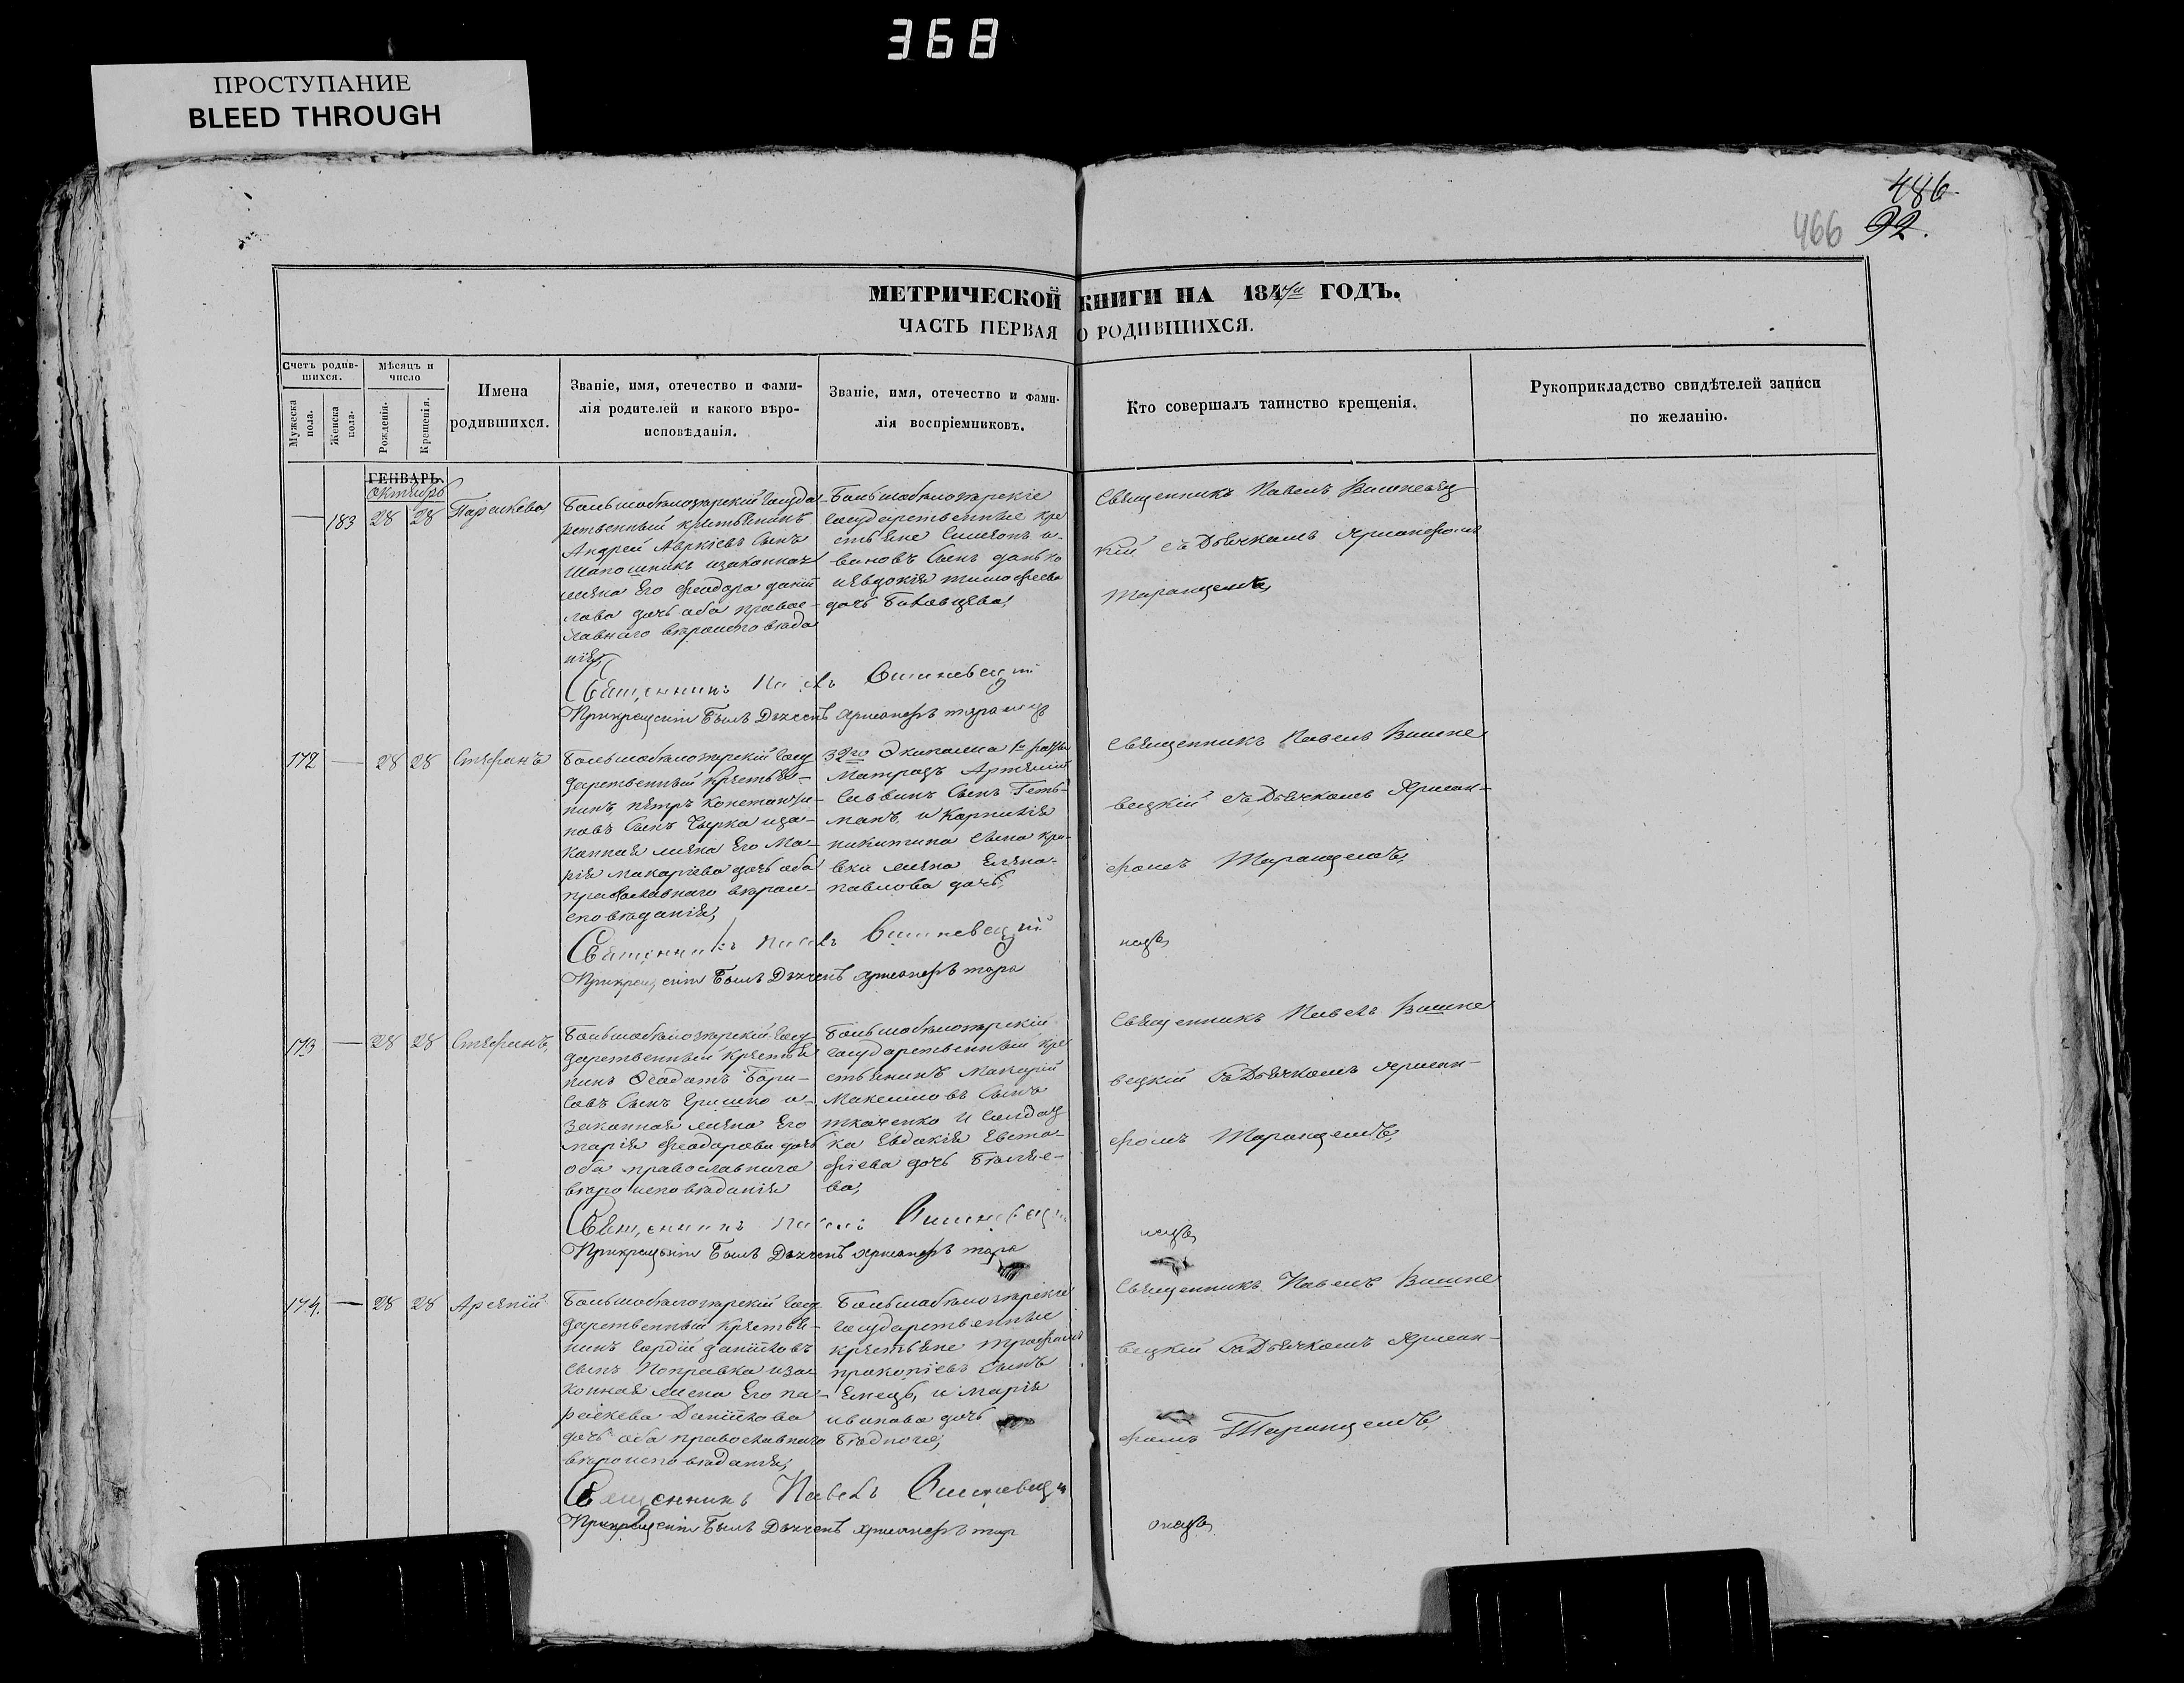 368
ПРОСТУПАНИЕ
BLEED THROUGH
486
466 92.
МЕТРИЧЕСКОЙ КНИГИ НА 184 ГОДЪ.
ЧАСТЬ ПЕРВАЯ О РОДИВШИХСЯ.
Счетъ родив-
шихся.
Мужеска
пола.
Женска
пола.
Мѣсяцъ и
число
Рожденія.
Крещенія.
Имена
родившихся.
Званіе, имя, отечество и фами-
лія родителей и какого вѣро-
исповѣданія.
Званіе, имя, отечество и фами-
лія воспріемниковъ.
Кто совершалъ таинство крещенія.
Рукоприкладство свидѣтелей записи
по желанію.
ГЕНВАРЬ.
октябрь
— 183 28 28
Параскева,
Большобѣлозерскій госуда
рственный крестьянинъ
Андрей Авркіевъ Сынъ
Шапошникъ изаконная
жена Его Феодора даніи
лова дочь оба правос-
лавнаго вѣроисповѣда
нія,
Большобѣлозерскіе
государственные кре
стьяне Симеонъ и-
вановъ Сынъ данько
иевдокія тимофеева
дочь
Священникъ Павелъ Вишневец
кій съ Дьячкомъ Ярмонфомъ
таранцемъ,
Священникъ Павелъ Вишневецкій
Прикрещеніи Былъ Дячекъ
172 — 28 28
Стефанъ
Большобѣлозерскій госу
дарственный Крестья-
нинъ петръ константи-
новъ Сынъ Чырка иза-
конная жена Его Ма-
рія макарьева дочь оба
православнаго вѣрои-
сповѣданія,
32го Экипажа
Матрозъ Артемій
Саввинъ Сынъ Геть-
манъ, и Корнилія
никитина сына кри-
вки жена Елена-
павлова дочь,
Священникъ Павелъ Вишне
вецкій съ Дьячкомъ Ярмон-
фомъ Таранцемъ,
Священникъ Павелъ Вишневецкій
Прикрещеніи Былъ Дячекъ тара
нецъ,
173 — 28 28
Стефанъ,
Большобѣлозерскій госу
дарственный Крестья
нинъ Феодотъ Бори-
совъ Сынъ Гришко и-
законная жена Его
марія Феодорова дочь
оба православнаго
вѣроисповѣданія
Большобѣлозерскій
государственный кре
стьянинъ Макарій
Максимовъ Сынъ
ткаченко И Солдат
ка Евдокія Евста-
фіева дочь Бѣляе-
ва,
Священникъ Павелъ Вишне
вецкій съ Дьячкомъ Ярмон-
фомъ Таранцемъ,
Священникъ Павелъ Вишневецкій
Прикрещеніи Былъ Дячекъ тара
нецъ,
174. — 28 28
Арсеній
Большобѣлозерскій госу
дарственный крестья-
нинъ Гордій даніиловъ
сынъ Поправка иза-
конная жена Его па-
раскева Даніилова
дочь оба православнаго
вѣроисповѣданія,
Большобѣлозерскіе
государственные
крестьяне трофимъ
прокопіевъ Сынъ
Емецъ, и марія
иванова дочь
Бѣдного,
Священникъ Павелъ Вишне
вецкій съ Дьячкомъ Ярмон-
фомъ Таранцемъ,
Священникъ Павелъ Вишневецкій
Прикрещеніи Былъ Дячекъ тар
анецъ,